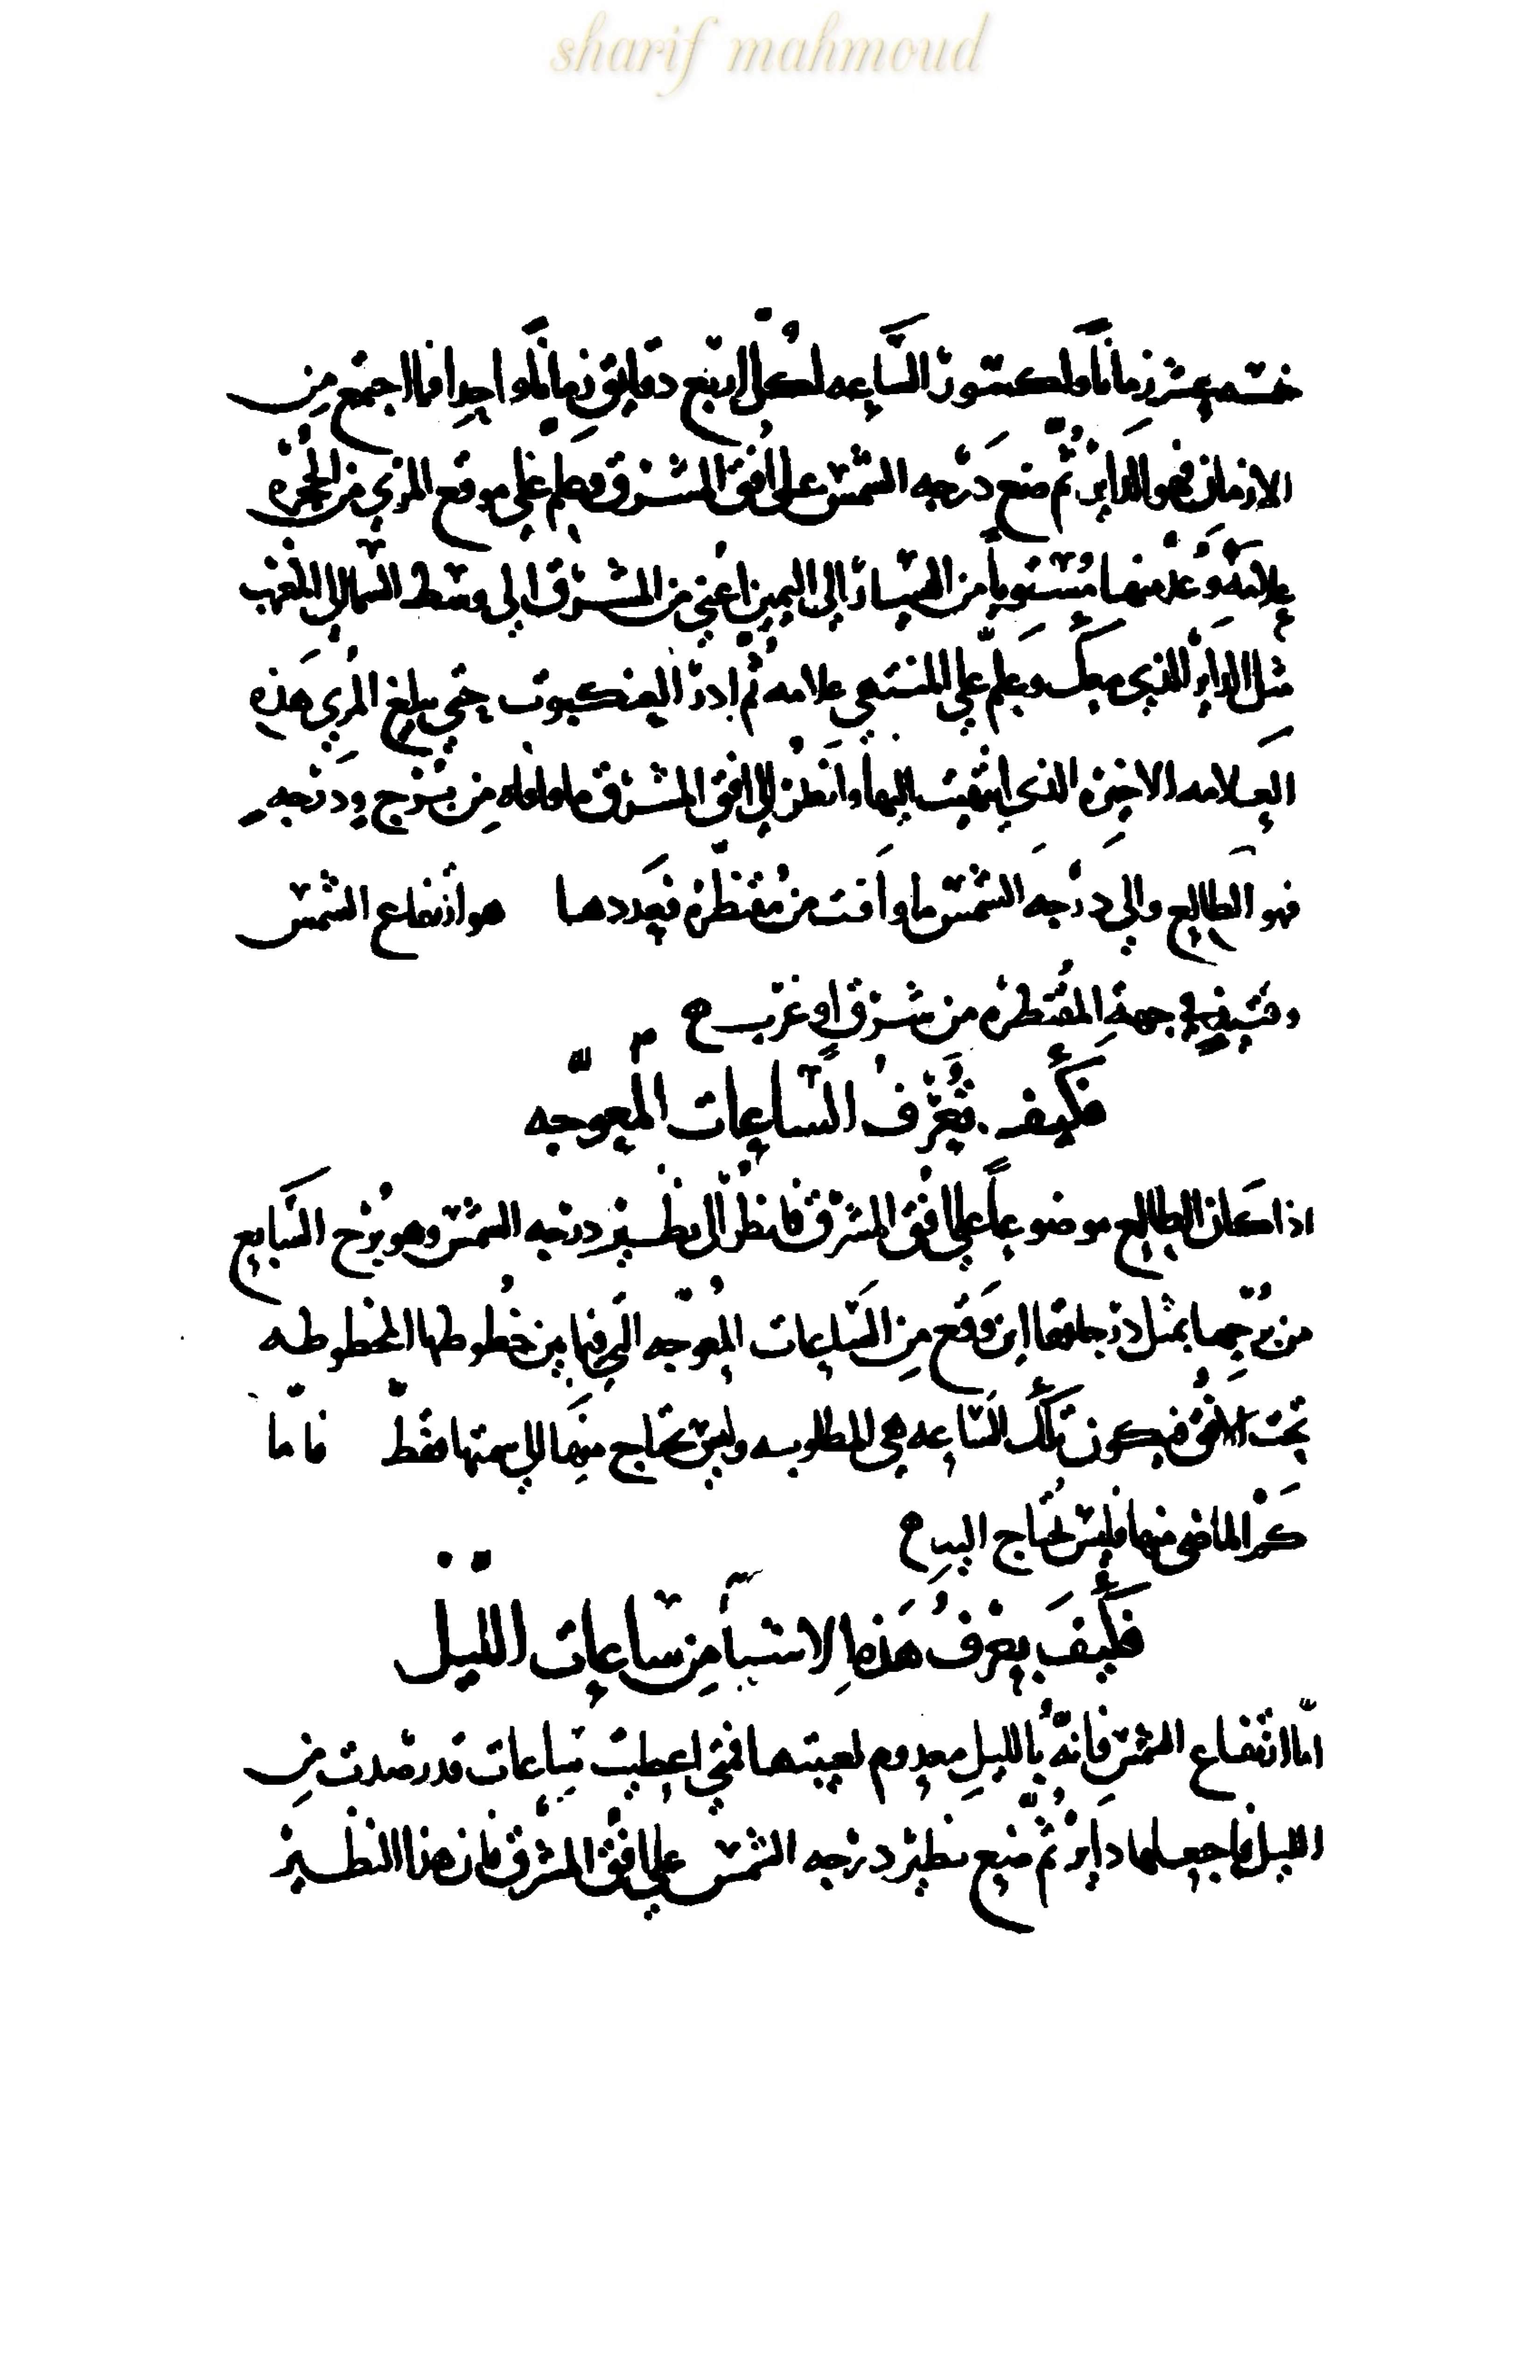 sharif mahmoud
خمسه عشر زماناً ولكسور الساعه لكل اربع دقايق زماناً واحدا فما اجتمع من
الازمان فهو الداير ثم ضع درجه الشمس على افق المشرق وعلم على موقع المري من الحجره
علامة وعد منها مستوياً من اليسار الى اليمين اعني من المشرق الى وسط السما الى المغرب
مثل الداير الذي معك وعلم على المنتهى علامه ثم ادر العنكبوت حتى يبلغ المري هذه
العلامه الاخيره الذي انتهيت اليها وانظر الى افق المشرق ما وافاه من برج ودرجه
فهو الطالع والى درجه الشمس ما وافت من مقنطره فعددها هو ارتفاع الشمس
وقتيذ في جهة المقنطره من شرق او غرب ح
فكيف تعرف الساعات المعوجه
اذا كان الطالع موضوعاً على افق المشرق فانظر الى نظير درجه الشمس وهو برج السابع
من برجها بمثل درجاتها اين وقع من الساعات المعوجه التي فيما بين خطوطها المخطوطه
تحت الافق فيكون تلك الساعه هي المطلوبه وليس تحتاج منها الى سمتها فقط فاما
كم الماضى منها فليس تحتاج اليه ح
فكيف يعرف هذه الاشيا من ساعات الليل
اما ارتفاع الشمس فانه بالليل معدوم لغيبتها فمتى اعطيت ساعات قد رصدت من
الليل فاجعلها داير ثم ضع نظير درجه الشمس على افق المشرق فان هذا النظير